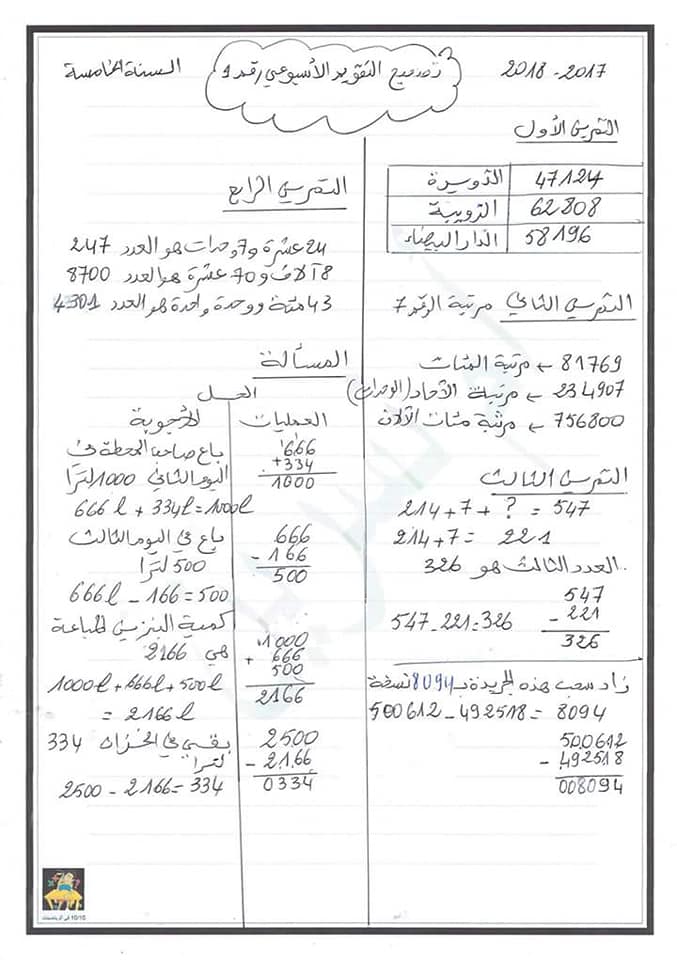 2017 - 2018
تصحيح التقويم الأسبوعي رقم 1
السنة الخامسة
التمرين الأول
الدويرة 47124
الرويبة 62808
الدار البيضاء 58196
التمرين الثاني مرتبة الرقم 7
81769 ← مرتبة المئات
234907 ← مرتبة الآحاد (الوحدات)
756800 ← مرتبة مئات الآلاف
التمرين الثالث
214 + 7 + ? = 547
214 + 7 = 221
العدد الثالث هو 326.
547
- 221
326
547 - 221 = 326
زاد سحب هذه الجريدة بـ 8094 نسخة
500612 - 492518 = 8094
500612
- 492518
008094
التمرين الرابع
24 عشرة و 7 وحدات هو العدد 247
8 آلاف و 70 عشرة هو العدد 8700
43 مئة ووحدة واحدة هو العدد 4301
المسألة
الحل
العمليات
الأجوبة
666
+ 334
1000
باع صاحب المحطة في
اليوم الثاني 1000 لترا
666 l + 334 l = 1000 l
666
- 166
500
باع في اليوم الثالث
500 لترا
666 l - 166 = 500
1000
+ 666
500
2166
كمية البنزين المباعة
هي 2166
1000 l + 666 l + 500 l
= 2166 l
2500
- 2166
0334
بقي في الخزان 334
لترا
2500 - 2166 = 334
10/10 في الرياضيات